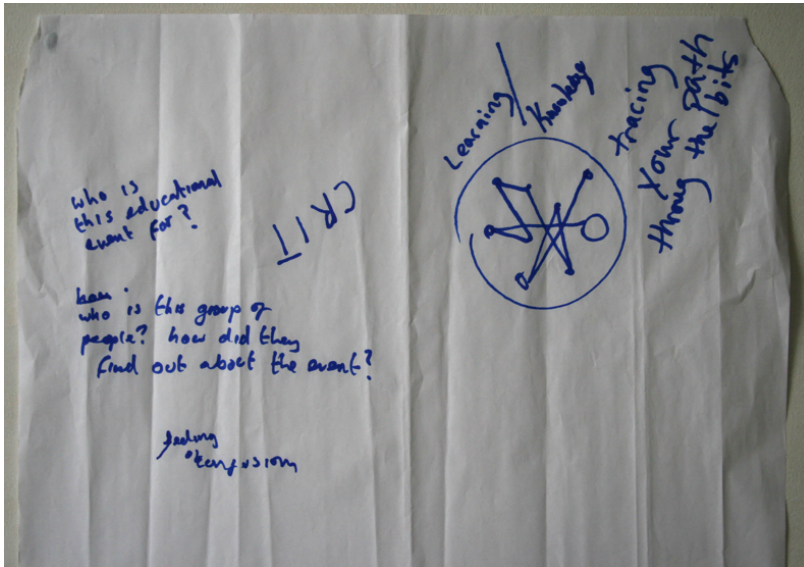 who is
this educational
event for?
CRIT
who is this group of
people? how did they
find out about the event?
feeling
of confusion
Learning/
Knowledge
tracing
your path
throug the bits